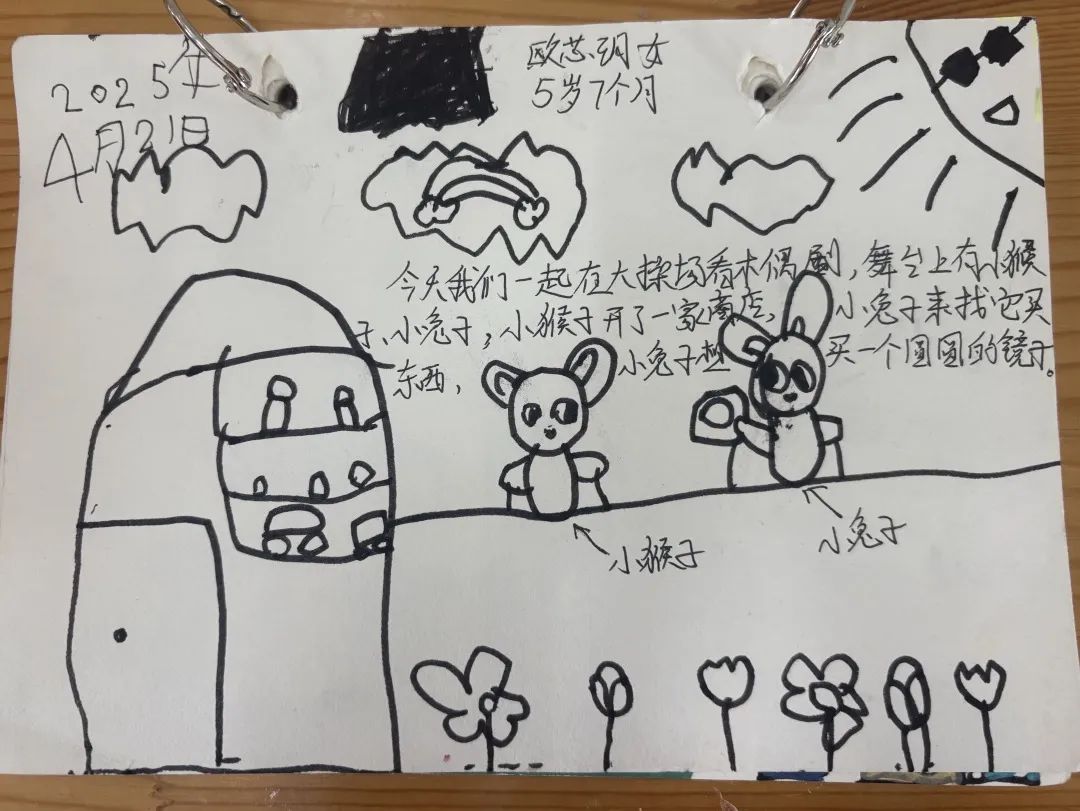 2025年
4月21日
欧芯玥女
5岁7个月
今天我们一起在大操场看木偶剧,舞台上有小猴
子、小兔子,小猴子开了一家商店,小兔子来找它买
东西,小兔子想买一个圆圆的镜子。
小猴子
小兔子